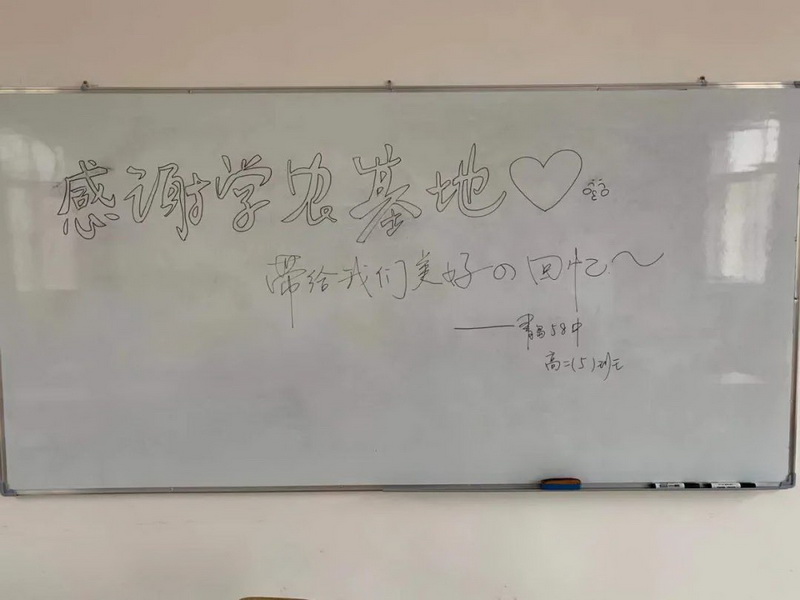 感谢学农基地♡
带给我们美好の回忆～
——青岛58中
高二(5)班